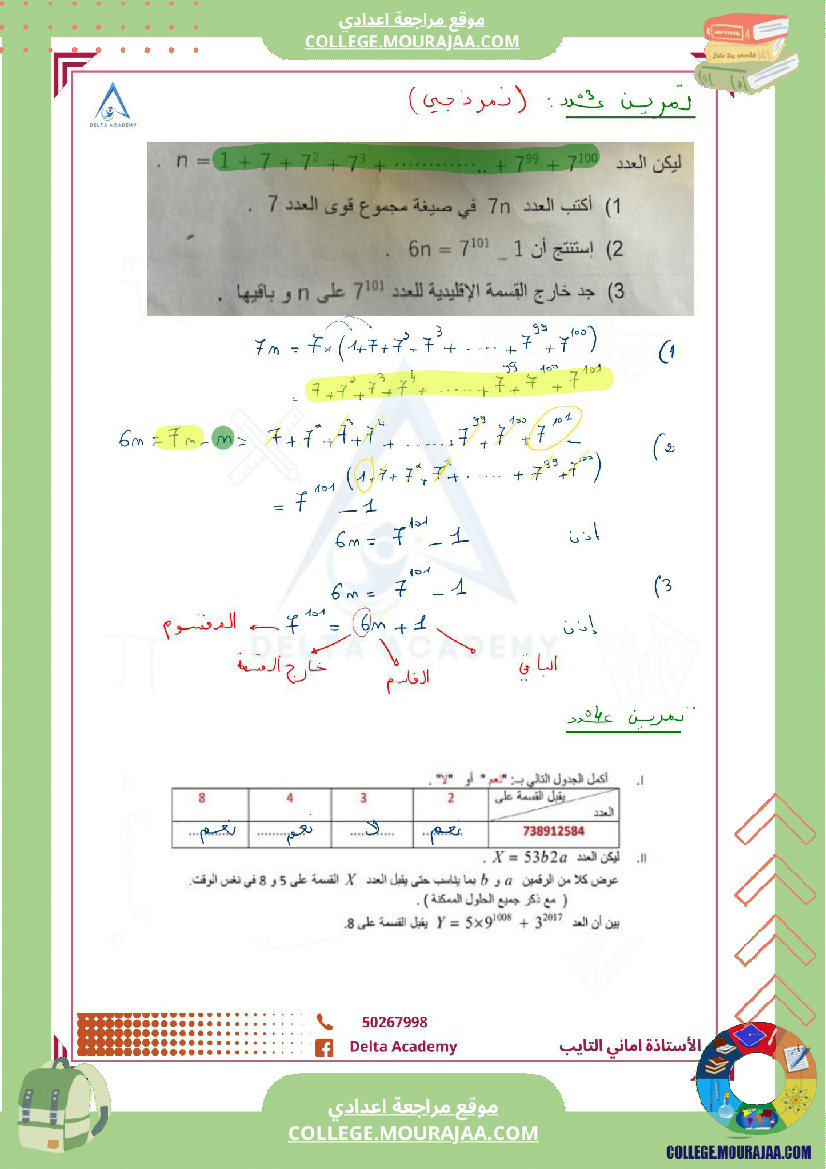 موقع مراجعة اعدادي
COLLEGE.MOURAJAA.COM
DELTA ACADEMY
تمرين عدد 03: (نموذجي)
ليكن العدد n = 1 + 7 + 7² + 7³ + ............. + 7⁹⁹ + 7¹⁰⁰ .
1) أكتب العدد 7n في صيغة مجموع قوى العدد 7 .
2) إستنتج أن 6n = 7¹⁰¹ _ 1 .
3) جد خارج القسمة الإقليدية للعدد 7¹⁰¹ على n و باقيها .
1) 7n = 7×(1+7+7²+7³+ ..... +7⁹⁹+7¹⁰⁰)
= 7+7²+7³+7⁴+ ...... +7⁹⁹+7¹⁰⁰+7¹⁰¹
2) 6n = 7n - n = 7+7²+7³+7⁴+ ...... +7⁹⁹+7¹⁰⁰+7¹⁰¹ -
(1+7+7²+7³+ ..... +7⁹⁹+7¹⁰⁰)
= 7¹⁰¹ - 1
اذن 6n = 7¹⁰¹ - 1
3) 6n = 7¹⁰¹ - 1
إذن 7¹⁰¹ = 6n + 1 ← المقسوم
الباقي القاسم خارج القسمة
DELTA ACADEMY
تمرين عدد 04
I. أكمل الجدول التالي بـ: "نعم" أو "لا" .
يقبل القسمة على 2 3 4 8
العدد
738912584 نعم لا نعم نعم
II. ليكن العدد X = 53b2a .
عوض كلا من الرقمين a و b بما يناسب حتى يقبل العدد X القسمة على 5 و 8 في نفس الوقت.
( مع ذكر جميع الحلول الممكنة ) .
بين أن العد Y = 5×9¹⁰⁰⁸ + 3²⁰¹⁷ يقبل القسمة على 8.
50267998
Delta Academy
الأستاذة اماني التايب
موقع مراجعة اعدادي
COLLEGE.MOURAJAA.COM
COLLEGE.MOURAJAA.COM